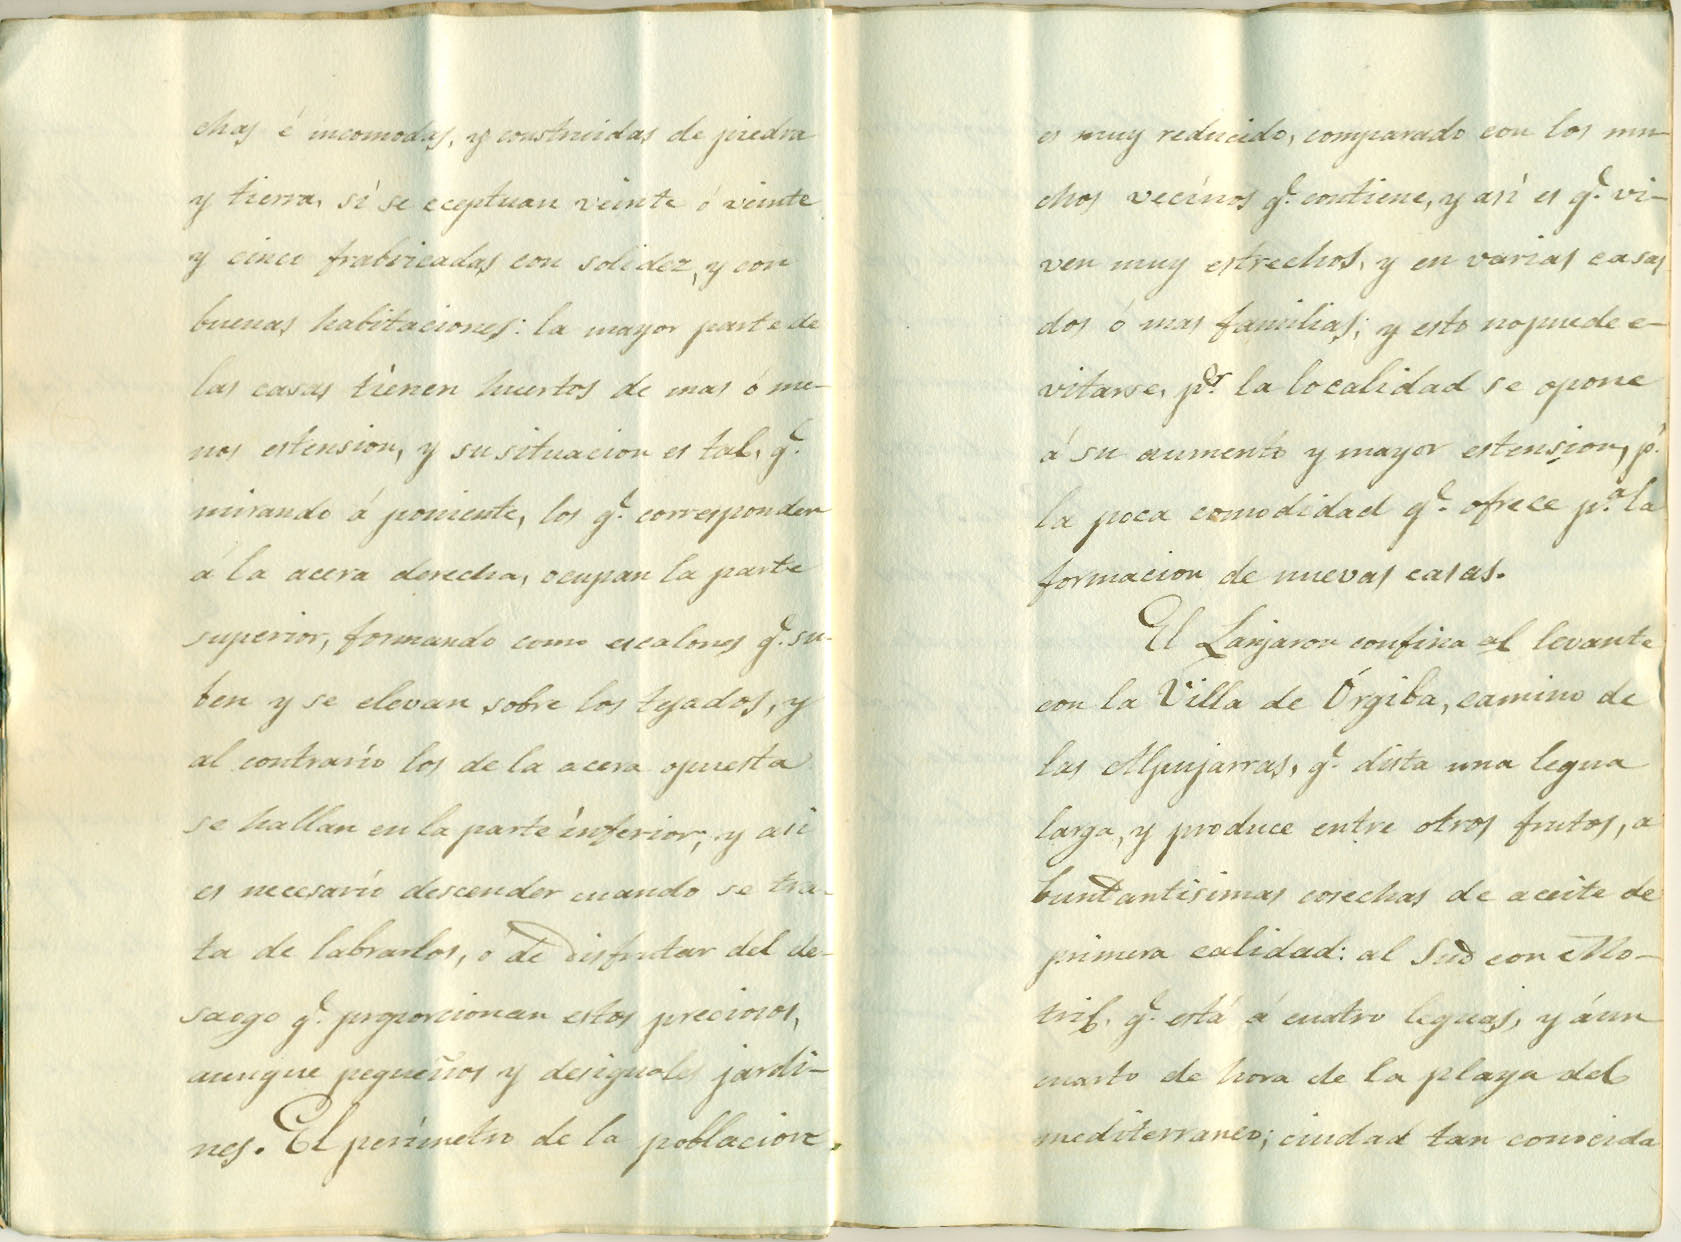 chas é incomodas, y construidas de piedra
y tierra, sí se eceptuan veinte ó veinte
y cinco frabricadas con solidez, y con
buenas habitaciones: la mayor parte de
las casas tienen huertos de mas ó me-
nos estension, y su situacion es tal, q.e
mirando á poniente, los q.e corresponden
á la acera derecha, ocupan la parte
superior, formando como escalones q.e su-
ben y se elevan sobre los tejados, y
al contrario los de la acera opuesta
se hallan en la parte inferior; y asi
es necesario descender cuando se tra-
ta de labrarlos, o de disfrutar del de-
saogo q.e proporcionan estos preciosos,
aunque pequeños y desiguales jardi-
nes. El perímetro de la poblacion,
es muy reducido, comparado con los mu-
chos vecinos q.e contiene, y así es q.e vi-
ven muy estrechos, y en varias casas
dos ó mas familias; y esto no puede e-
vitarse, p.r la localidad se opone
á su aumento y mayor estension, p.r
la poca comodidad q.e ofrece p.a la
formacion de nuevas casas.
El Lanjaron confina al levante
con la Villa de Órgiba, camino de
las Alpujarras, q.e dista una legua
larga, y produce entre otros frutos, a
buntantisimas cosechas de aceite de
primera calidad: al Sud con Mo-
tril, q.e está á cuatro leguas, y á un
cuarto de hora de la playa del
mediterraneo; ciudad tan conocida